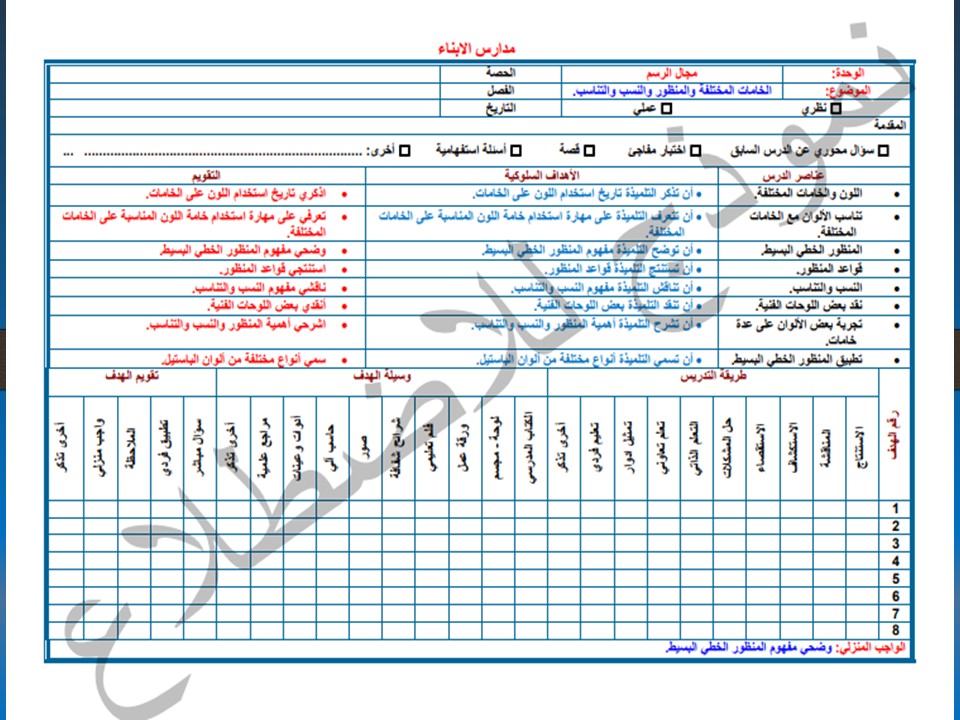 مدارس الابناء
الوحدة: مجال الرسم الحصة
الموضوع: الخامات المختلفة والمنظور والنسب والتناسب. الفصل
نظري عملي التاريخ
المقدمة
سؤال محوري عن الدرس السابق اختبار مفاجئ قصة أسئلة استفهامية أخرى: ...
عناصر الدرس الأهداف السلوكية التقويم
• اللون والخامات المختلفة. • أن تذكر التلميذة تاريخ استخدام اللون على الخامات. • اذكري تاريخ استخدام اللون على الخامات.
• تناسب الألوان مع الخامات المختلفة. • أن تتعرف التلميذة على مهارة استخدام خامة اللون المناسبة على الخامات المختلفة. • تعرفي على مهارة استخدام خامة اللون المناسبة على الخامات المختلفة.
• المنظور الخطي البسيط. • أن توضح التلميذة مفهوم المنظور الخطي البسيط. • وضحي مفهوم المنظور الخطي البسيط.
• قواعد المنظور. • أن تستنتج التلميذة قواعد المنظور. • استنتجي قواعد المنظور.
• النسب والتناسب. • أن تناقش التلميذة مفهوم النسب والتناسب. • ناقشي مفهوم النسب والتناسب.
• نقد بعض اللوحات الفنية. • أن تنقد التلميذة بعض اللوحات الفنية. • أنقدي بعض اللوحات الفنية.
• تجربة بعض الألوان على عدة خامات. • أن تشرح التلميذة أهمية المنظور والنسب والتناسب. • اشرحي أهمية المنظور والنسب والتناسب.
• تطبيق المنظور الخطي البسيط. • أن تسمي التلميذة أنواع مختلفة من ألوان الباستيل. • سمي أنواع مختلفة من ألوان الباستيل.
طريقة التدريس وسيلة الهدف تقويم الهدف
رقم الهدف
الاستنتاج
المناقشة
الاستكشاف
الاستقصاء
حل المشكلات
التعلم الذاتي
تعلم تعاوني
تمثيل ادوار
تعليم فردي
أخرى تذكر
الكتاب المدرسي
لوحة - مجسم
ورقة عمل
فلم تعليمي
شرائح شفافة
صور
حاسب آلي
أدوات وعينات
مراجع علمية
أخرى تذكر
سؤال مباشر
تطبيق فردي
الملاحظة
واجب منزلي
أخرى تذكر
1
2
3
4
5
6
7
8
الواجب المنزلي: وضحي مفهوم المنظور الخطي البسيط.
نموذج للاضطلاع